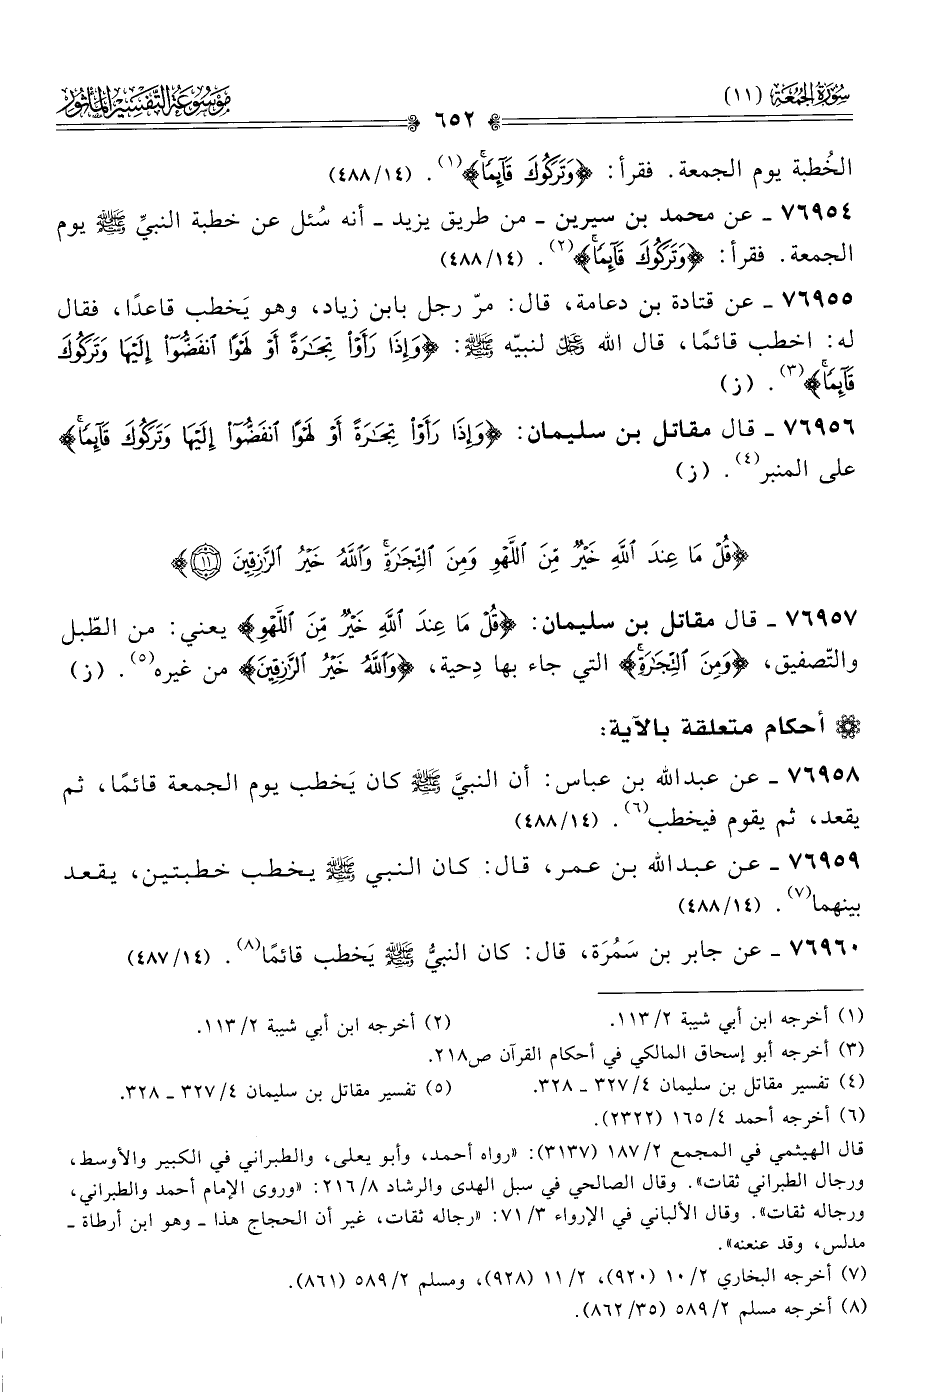 سُورَةُ الجُمُعَة (١١)
٦٥٢
مَوْسُوعَة التَّفْسِير المَأثُور
الخُطبة يوم الجمعة. فقرأ: ﴿وَتَرَكُوكَ قَآئِمٗاۚ﴾(١). (٤٨٨/١٤)
٧٦٩٥٤ ـ عن محمد بن سيرين ـ من طريق يزيد ـ أنه سُئل عن خطبة النبيِّ ﷺ يوم
الجمعة. فقرأ: ﴿وَتَرَكُوكَ قَآئِمٗاۚ﴾(٢). (٤٨٨/١٤)
٧٦٩٥٥ ـ عن قتادة بن دعامة، قال: مرّ رجل بابن زياد، وهو يَخطب قاعدًا، فقال
له: اخطب قائمًا، قال الله ﷿ لنبيّه ﷺ: ﴿وَإِذَا رَأَوۡاْ تِجَٰرَةً أَوۡ لَهۡوًا ٱنفَضُّوٓاْ إِلَيۡهَا وَتَرَكُوكَ
قَآئِمٗاۚ﴾(٣). (ز)
٧٦٩٥٦ ـ قال مقاتل بن سليمان: ﴿وَإِذَا رَأَوۡاْ تِجَٰرَةً أَوۡ لَهۡوًا ٱنفَضُّوٓاْ إِلَيۡهَا وَتَرَكُوكَ قَآئِمٗاۚ﴾
على المنبر(٤). (ز)
﴿قُلۡ مَا عِندَ ٱللَّهِ خَيۡرٞ مِّنَ ٱللَّهۡوِ وَمِنَ ٱلتِّجَٰرَةِۚ وَٱللَّهُ خَيۡرُ ٱلرَّٰزِقِينَ ١١﴾
٧٦٩٥٧ ـ قال مقاتل بن سليمان: ﴿قُلۡ مَا عِندَ ٱللَّهِ خَيۡرٞ مِّنَ ٱللَّهۡوِ﴾ يعني: من الطّبل
والتّصفيق، ﴿وَمِنَ ٱلتِّجَٰرَةِۚ﴾ التي جاء بها دِحية، ﴿وَٱللَّهُ خَيۡرُ ٱلرَّٰزِقِينَ﴾ من غيره(٥). (ز)
أحكام متعلقة بالآية:
٧٦٩٥٨ ـ عن عبدالله بن عباس: أن النبيَّ ﷺ كان يَخطب يوم الجمعة قائمًا، ثم
يقعد، ثم يقوم فيخطب(٦). (٤٨٨/١٤)
٧٦٩٥٩ ـ عن عبدالله بن عمر، قال: كان النبي ﷺ يخطب خطبتين، يقعد
بينهما(٧). (٤٨٨/١٤)
٧٦٩٦٠ ـ عن جابر بن سَمُرَة، قال: كان النبيُّ ﷺ يَخطب قائمًا(٨). (٤٨٧/١٤)
(١) أخرجه ابن أبي شيبة ١١٣/٢. (٢) أخرجه ابن أبي شيبة ١١٣/٢.
(٣) أخرجه أبو إسحاق المالكي في أحكام القرآن ص٢١٨.
(٤) تفسير مقاتل بن سليمان ٣٢٧/٤ ـ ٣٢٨. (٥) تفسير مقاتل بن سليمان ٣٢٧/٤ ـ ٣٢٨.
(٦) أخرجه أحمد ١٦٥/٤ (٢٣٢٢).
قال الهيثمي في المجمع ١٨٧/٢ (٣١٣٧): «رواه أحمد، وأبو يعلى، والطبراني في الكبير والأوسط،
ورجال الطبراني ثقات». وقال الصالحي في سبل الهدى والرشاد ٢١٦/٨: «وروى الإمام أحمد والطبراني،
ورجاله ثقات». وقال الألباني في الإرواء ٧١/٣: «رجاله ثقات، غير أن الحجاج هذا ـ وهو ابن أرطاة ـ
مدلس، وقد عنعنه».
(٧) أخرجه البخاري ١٠/٢ (٩٢٠)، ١١/٢ (٩٢٨)، ومسلم ٥٨٩/٢ (٨٦١).
(٨) أخرجه مسلم ٥٨٩/٢ (٨٦٢/٣٥).